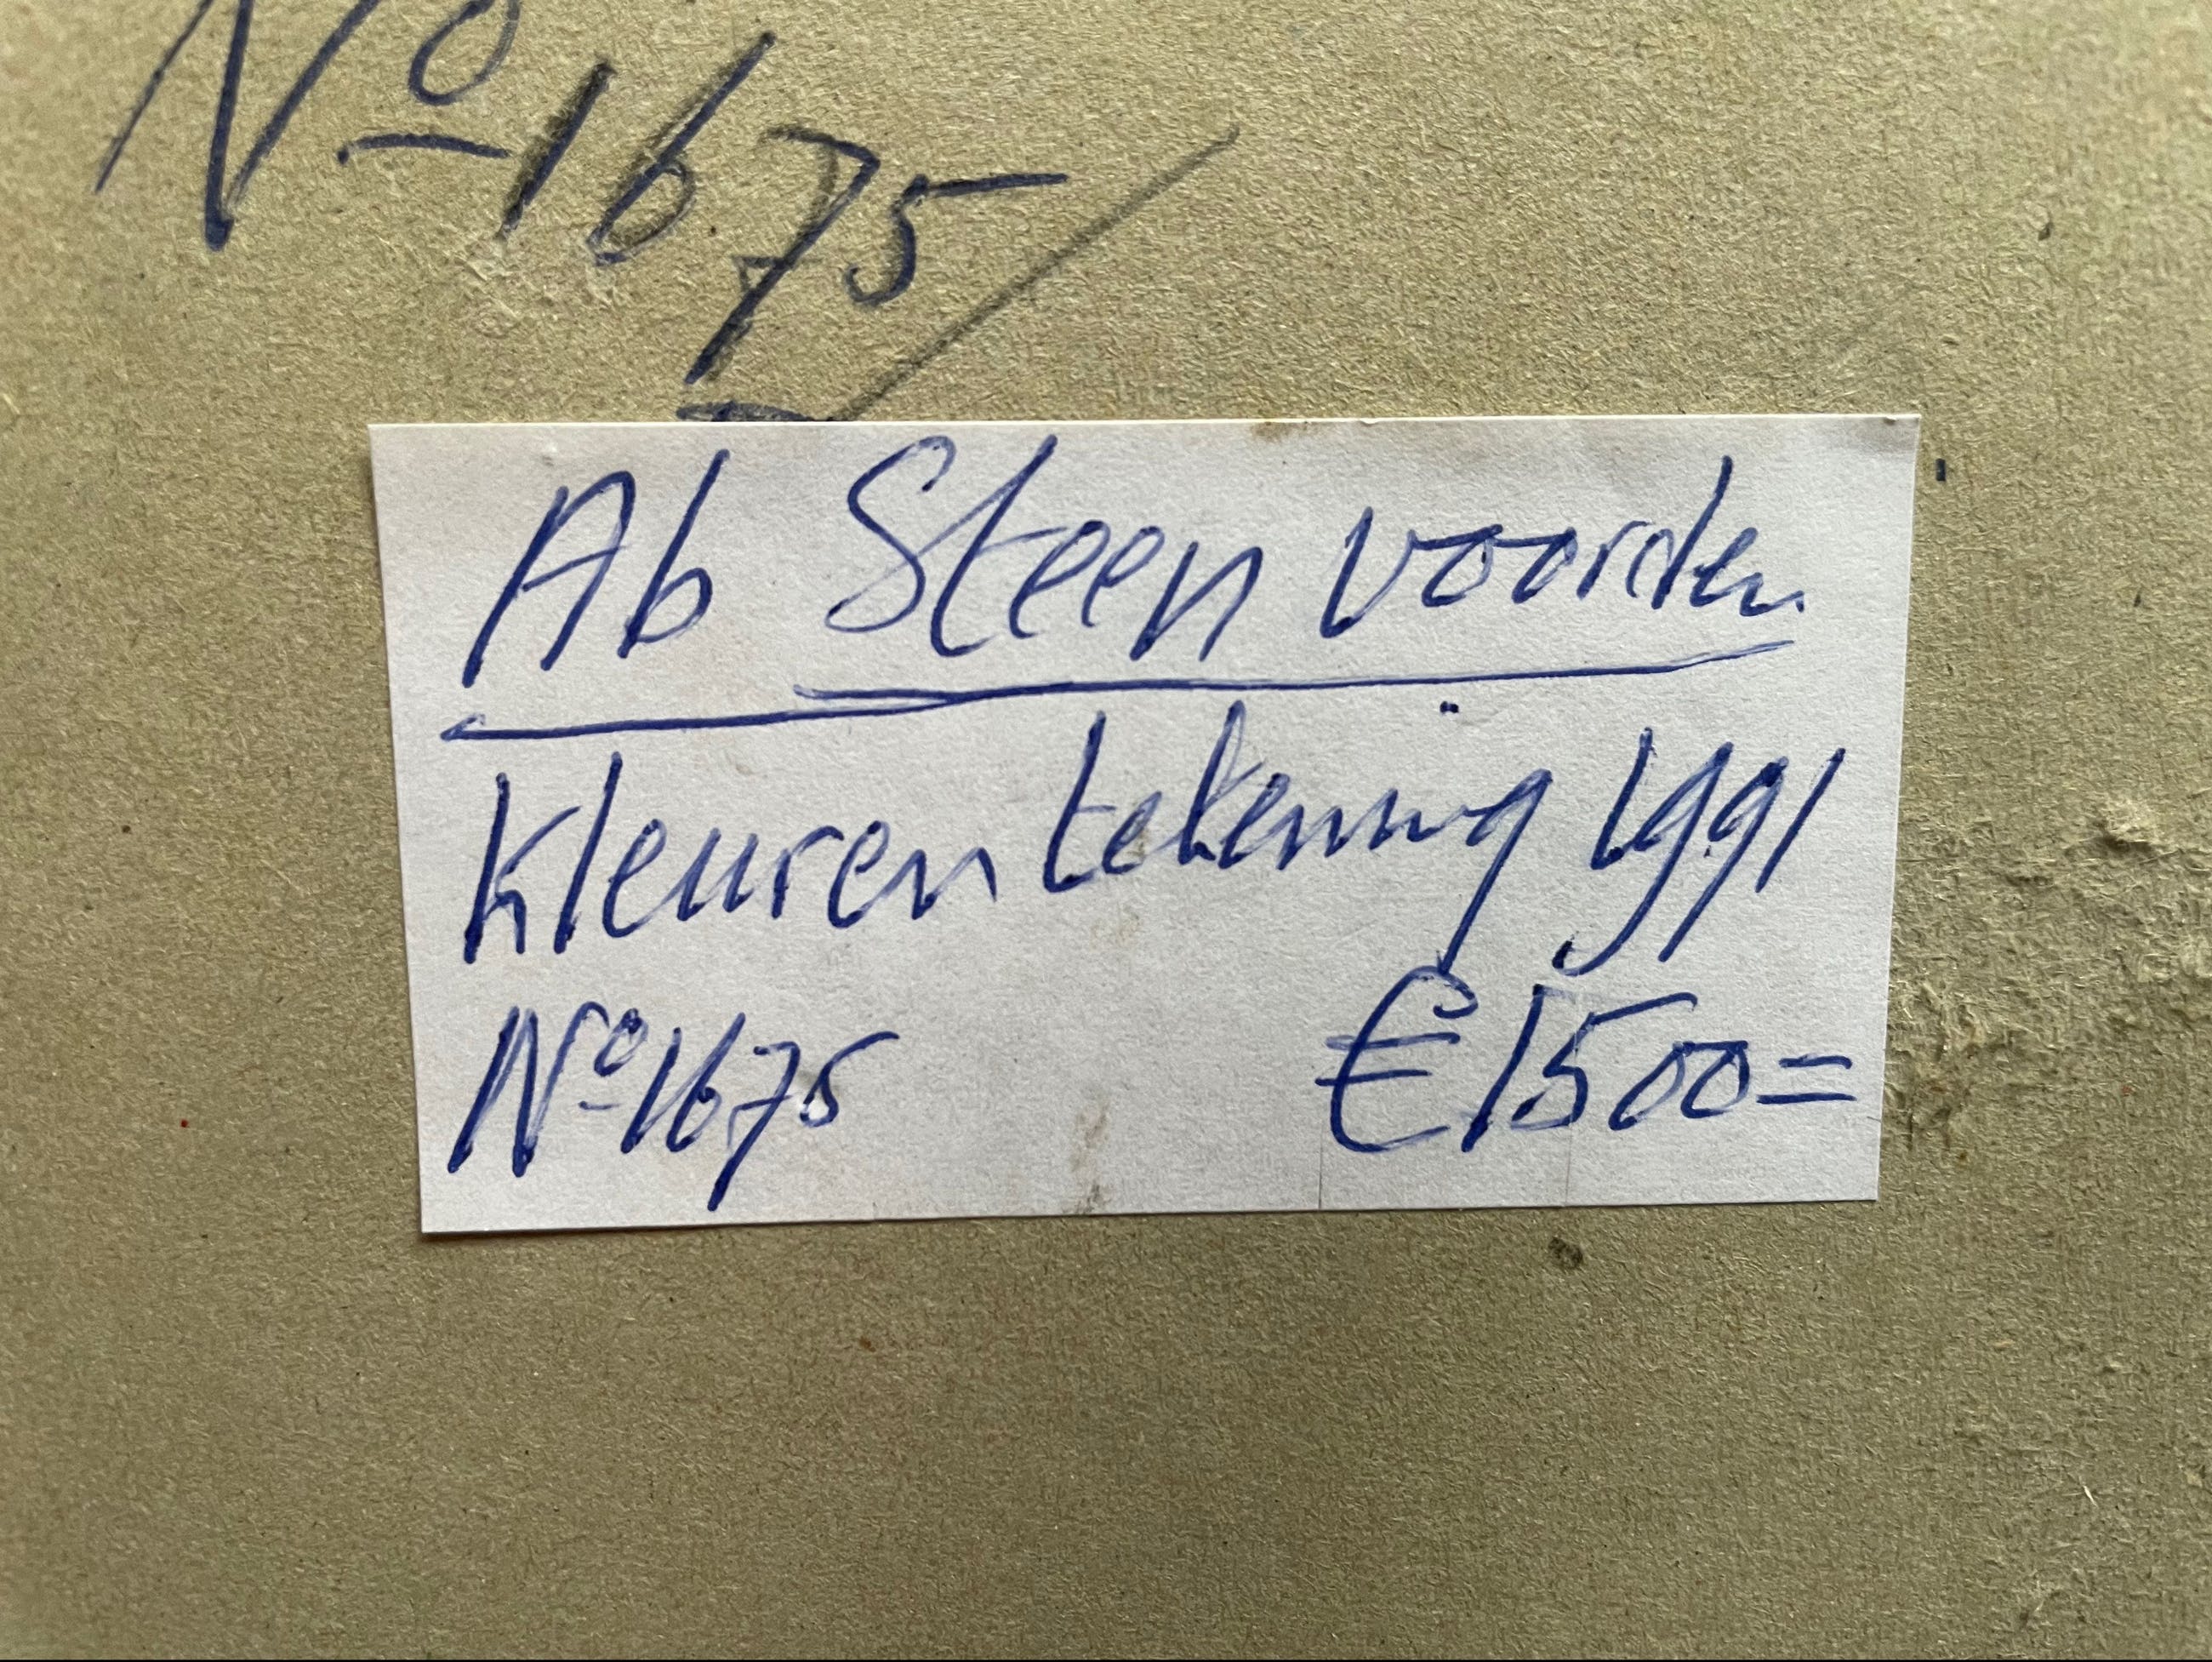 Nº 1675
Ab Steenvoorden
Kleurentekening 1991
Nº 1675 € 1500=